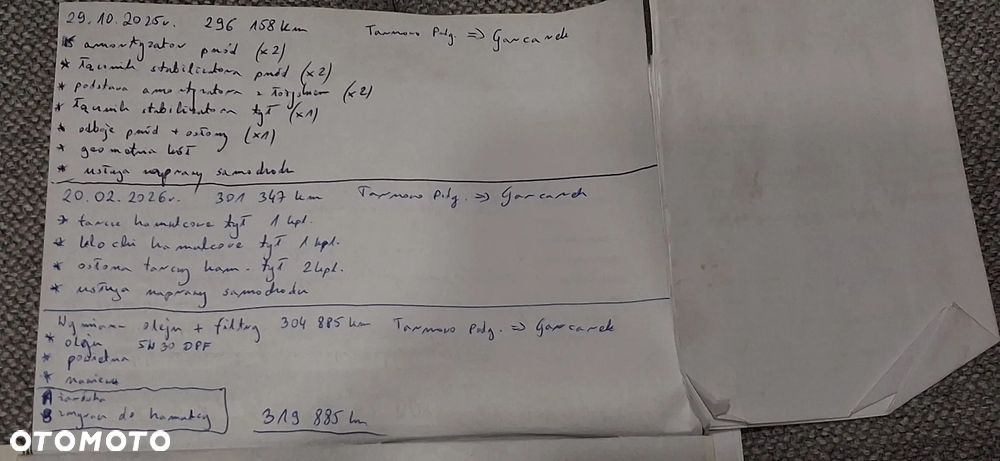 29.10.2025r. 296 158 km Tarnowo Podg. => Garcarek
* amortyzator przód (x2)
* łącznik stabilizatora przód (x2)
* podstawa amortyzatora z łożyskiem (x2)
* łącznik stabilizatora tył (x1)
* odboje przód + osłony (x1)
* geometria kół
* usługa naprawy samochodu
20.02.2026r. 301 347 km Tarnowo Podg. => Garcarek
* tarcze hamulcowe tył 1 kpl.
* klocki hamulcowe tył 1 kpl.
* osłona tarczy ham. tył 2 kpl.
* usługa naprawy samochodu
Wymiana oleju + filtry 304 885 km Tarnowo Podg. => Garcarek
* oleju 5W30 DPF
* powietrza
*
A
B zmywacz do hamulcy 319 885 km
OTOMOTO